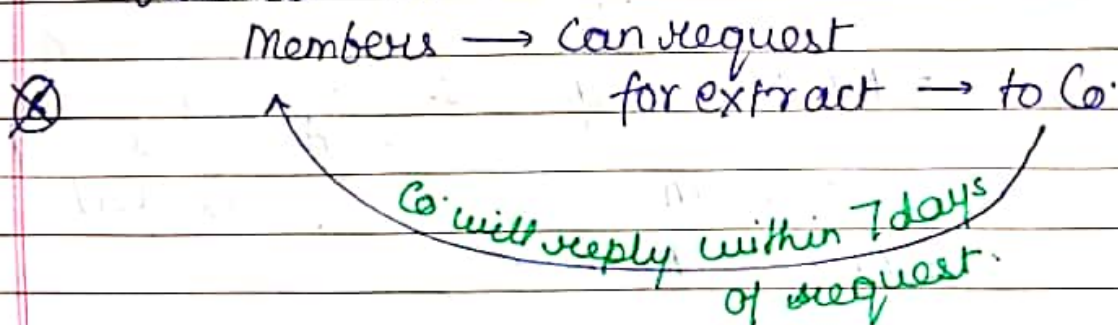 Members → Can request
for extract → to Co.
Co. will reply within 7 days
of request.